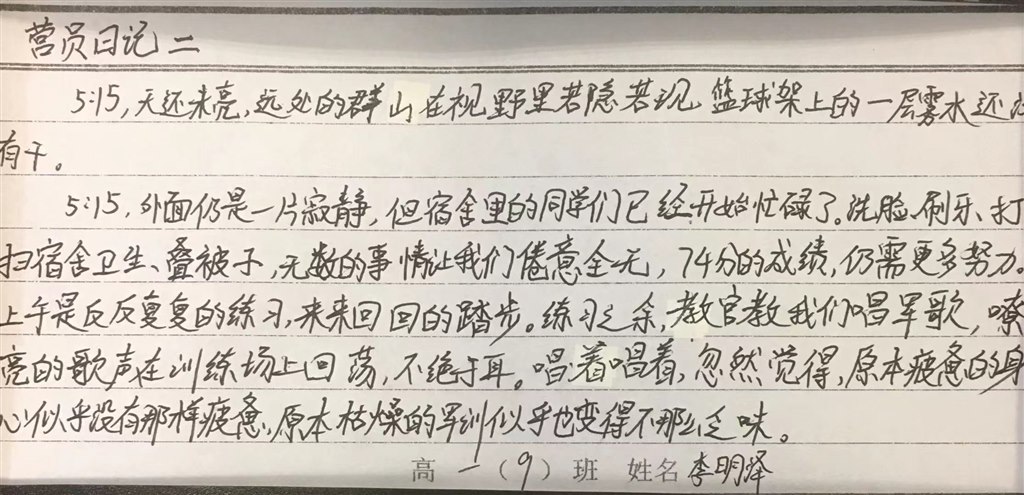 营员日记二
5:15,天还未亮,远处的群山在视野里若隐若现 篮球架上的一层雾水还没
有干。
5:15,外面仍是一片寂静,但宿舍里的同学们已经开始忙碌了。洗脸、刷牙、打
扫宿舍卫生、叠被子,无数的事情让我们倦意全无,74分的成绩,仍需更多努力。
上午是反反复复的练习,来来回回的踏步。练习之余,教官教我们唱军歌,嘹
亮的歌声在训练场上回荡,不绝于耳。唱着唱着,忽然觉得,原本疲惫的身
心似乎没有那样疲惫,原本枯燥的军训似乎也变得不那么乏味。
高一(9)班 姓名 李明泽